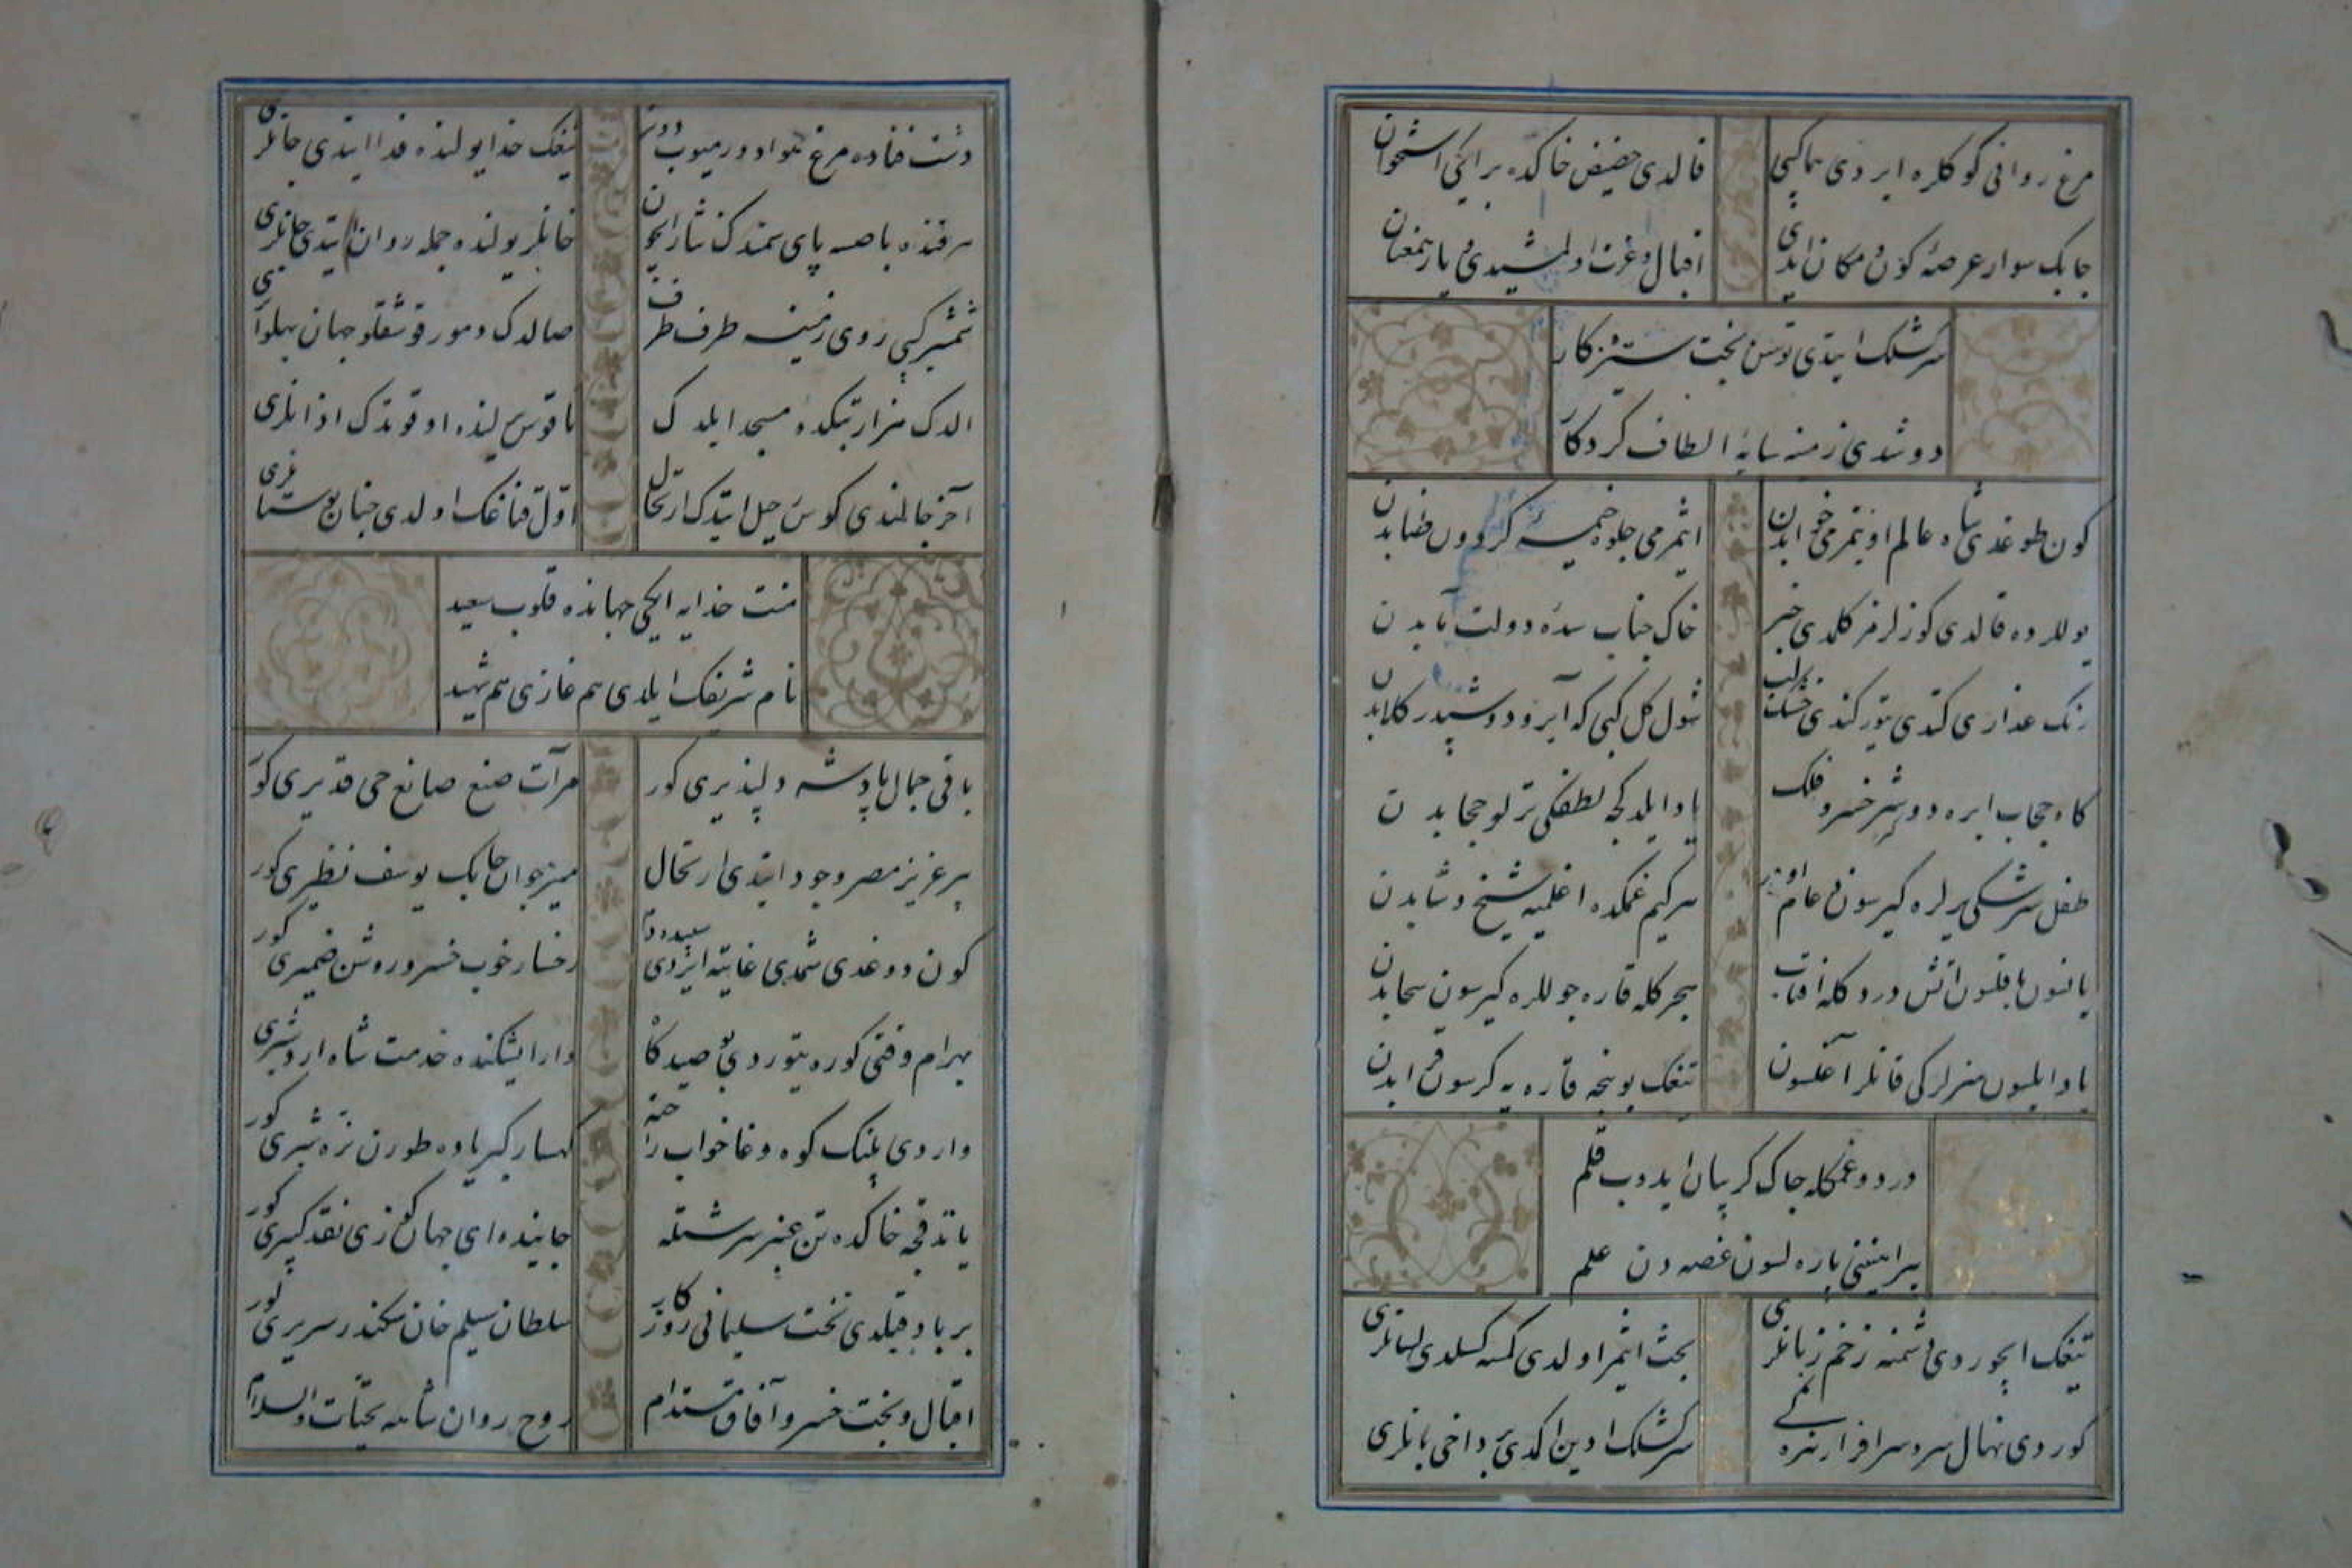 مرغ روانی کوکلره ایردی هما کبی قالدی حضیض خاکده بر ایکی استخوان
چابک سوار عرصهٔ کون و مکان ایدی اقبال و عزت اولمشیدی یار همعنان
سرکشلک ایتدی توسن بخت ستیزه‌کار
دوشدی زمینه سایهٔ الطاف کردکار
کون طوغدی شاه عالم اویغرمی خوابدن ایتمز می جلوه خیمهٔ کردون طنابدن
یوللرده قالدی کوزلرمز کلمدی خبر خاک جناب سدهٔ دولت مآبدن
رنک عذاری کتدی یتور کندی خشک لب شول کل کبی که آیرو دوشیدر کلابدن
کاه حجاب ابره دوشر خسرو فلک یاد ایلدکجه لطفکی ترلر حجابدن
طفل سرشکی یرلره کیرسون دعام اودر هر کیم غمکده اغلمیه شیخ و شابدن
یانسون یاقلسون اتش دردکله افتاب هجرکله قاره چوللره کیرسون سحابدن
یاد ایلسون هنرلرکی قانلر آغلسون تیغک بوینجه قاره یه کرسون قرابدن
درد و غمکله چاک کریبان ایدوب قلم
پیراهننی پاره لسون غصه دن علم
تیغک ایچوردی دشمنه زخم زبانلری بحث ایتمز اولدی کمسه کسلدی لسانلری
کوردی نهال سرو سرافراز نیزه کی سرکشلک ادین اکمدی بر داخی بانلری
دشت فناده مرغ هوا دورمیوب دونر تیغک خدا یولنده فدا ایتدی جانلری
هر قنده باصسه پای سمندک نثار ایچون خانلر یولنده جمله روان ایتدی جانلری
شمشیر کبی روی زمینه طرف طرف صالدک دمور قوشقلو جهان پهلوانلری
الدک هزار بتکده مسجد ایلدک ناقوس یرلرنده اوقوتدک اذانلری
آخر چالندی کوس رحیل ایتدک ارتحال اول قناغک اولدی جنان بوستانلری
منت خدایه ایکی جهانده قلوب سعید
نام شریفک ایلدی هم غازی هم شهید
باقی جمال پادشه دلپذیری کور مرآت صنع صانع حی قدیری کور
پیر عزیز مصر وجود ایتدی ارتحال میر جوان چابک یوسف نظیری کور
کون دوغدی شمدی غایته ایردی سپیده دم رخسار خوب خسرو روشن ضمیری کور
بهرام وقتی کوره یتوردی بو صیدکاه وار ایشیکنده خدمت شاه اردشیری کور
واردی پلنک کوه وغا خواب راحته کهسار کبریاده طورن نره شیری کور
یاتدقجه خاکده تن عنبر سرشتله جانبنده ای جهان کزی نقد کبیری کور
بر باد قیلدی تخت سلیمانی روزکار سلطان سلیم خان سکندر سریری کور
اقبال و بخت خسرو آفاق مستدام روح روان شاهه تحیات والسلام